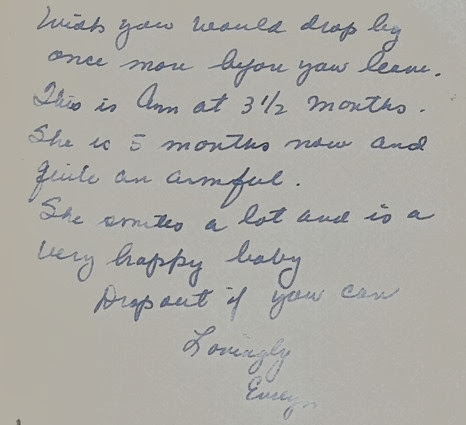 Wish you would drop by
once more before you leave.
This is Ann at 3 1/2 months.
She is 5 months now and
quite an armful.
She smiles a lot and is a
very happy baby
Drop out if you can
Lovingly